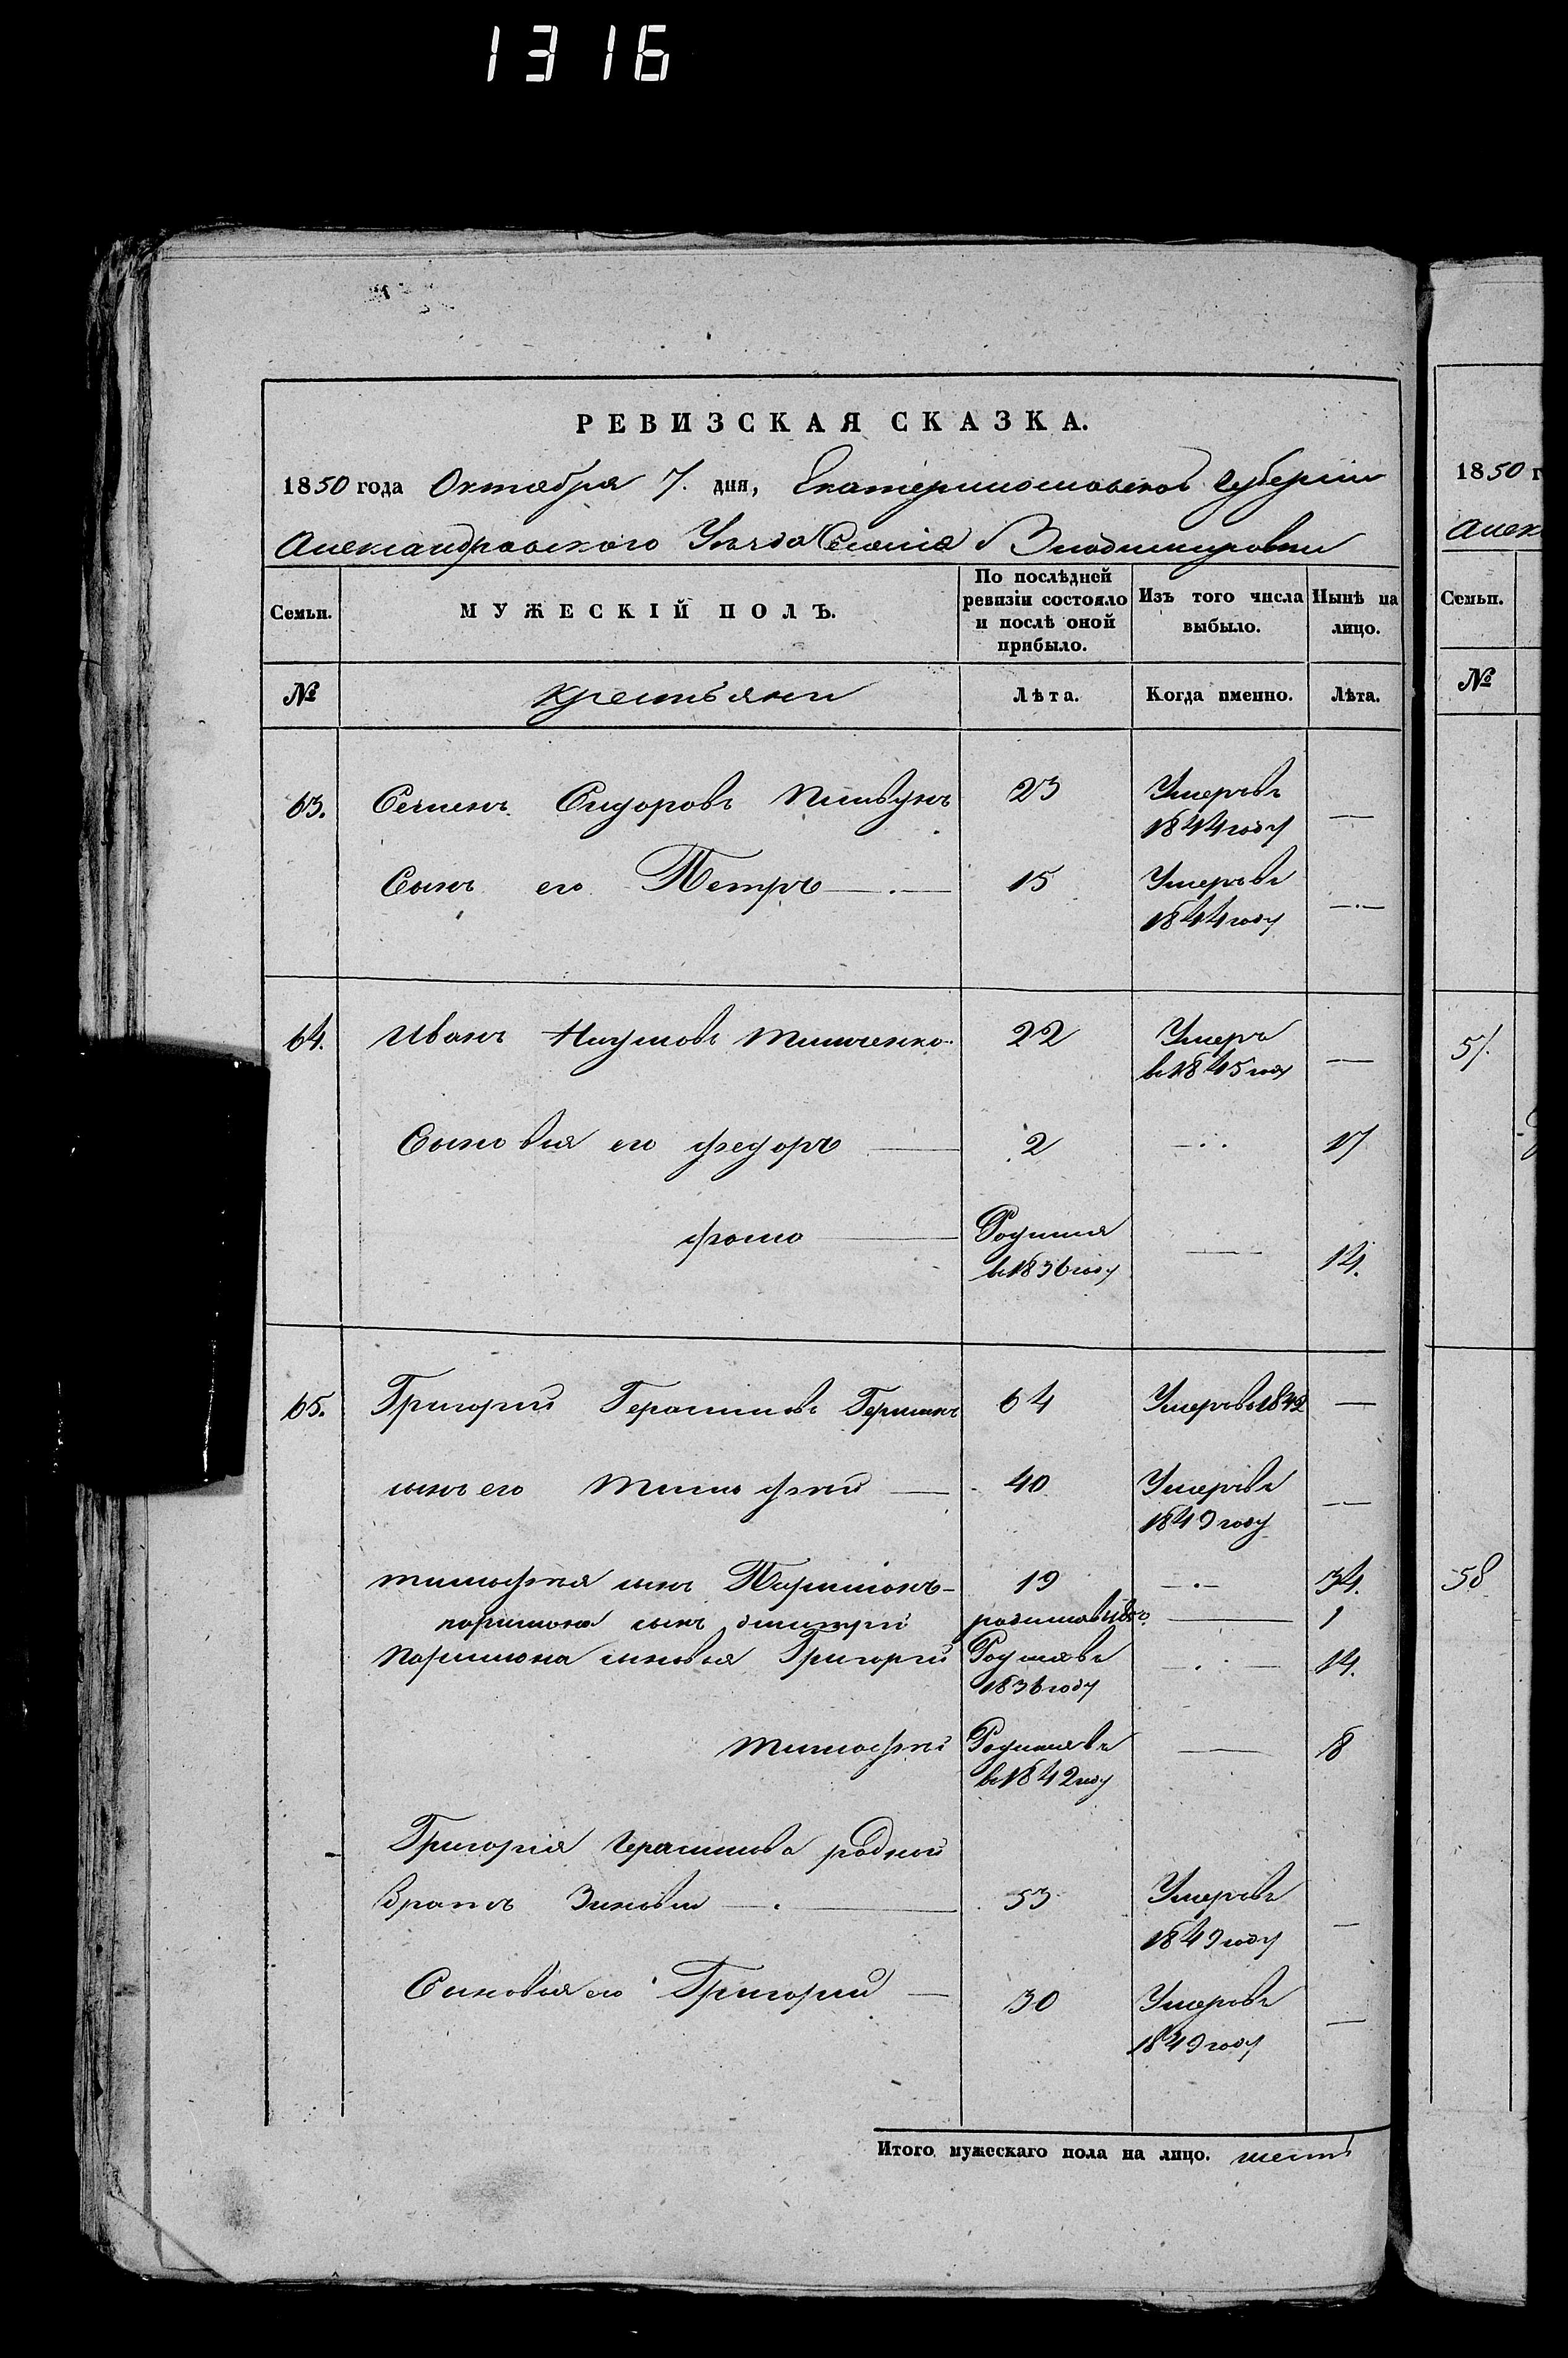 1316
РЕВИЗСКАЯ СКАЗКА.
1850 года Октября 7. дня, Екатеринославской Губернии
Александровского Уезда Селенія Владимировки
Семьи. МУЖЕСКІЙ ПОЛЪ. По послѣдней ревизіи состояло и послѣ оной прибыло. Изъ того числа выбыло. Нынѣ на лицо.
№ крестьяни Лѣта. Когда именно. Лѣта.
63. Семенъ Сидоровъ Пивунъ 23 Умеръ въ 1844 году —
Сынъ его Петръ 15 Умеръ въ 1844 году —
64. Иванъ Наумовъ Тимченко 22 Умеръ въ 1845 году —
Сыновья его Федоръ 2 — 17
Фома Родился въ 1836 году — 14.
65. Григорій Герасимовъ 64 Умеръ въ 1842 —
сынъ его Тимофѣй — 40 Умеръ въ 1849 году —
тимофѣя сынъ Паримонъ 19 — 34.
паримона сынъ дмитрій — 1
Паримона сыновья Григорій Родился въ 1836 году — 14.
Тимофѣй Родился въ 1842 году — 8
Григорія Герасимова родной
Братъ Зиновій — 53 Умеръ въ 1849 году —
Сыновья его Григорій — 30 Умеръ въ 1849 году —
Итого мужескаго пола на лицо. шесть
1850 г
Алек
Семьи.
№
57.
58